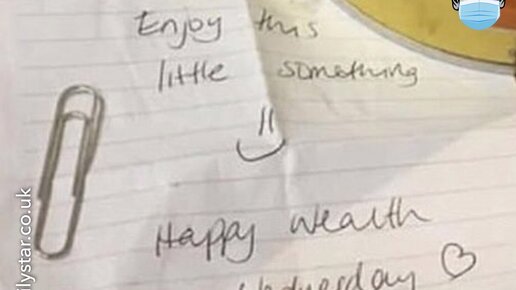 Enjoy this
little something
Happy Wealth
Wednesday ♡
ilystar.co.uk